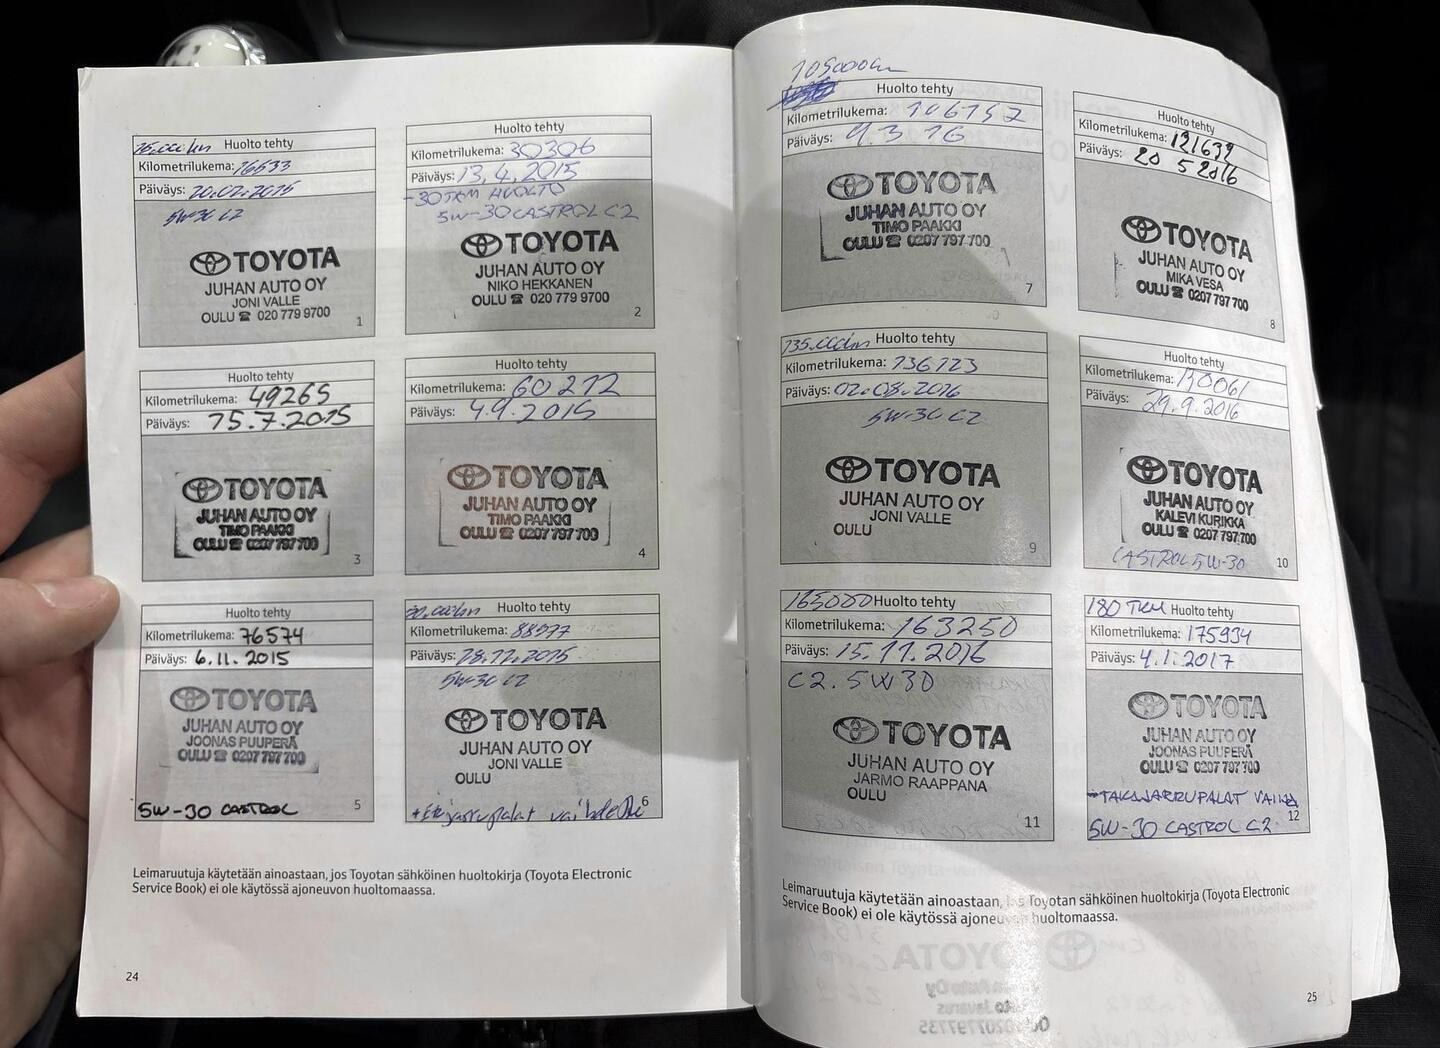 15.000km Huolto tehty
Kilometrilukema: 16533
Päiväys: 20.02.2015
5W-30 C2
TOYOTA
JUHAN AUTO OY
JONI VALLE
OULU ☎ 020 779 9700
1
Huolto tehty
Kilometrilukema: 30306
Päiväys: 13.4.2015
-30TKM HUOLTO
5W-30 CASTROL C2
TOYOTA
JUHAN AUTO OY
NIKO HEKKANEN
OULU ☎ 020 779 9700
2
Huolto tehty
Kilometrilukema: 49265
Päiväys: 15.7.2015
TOYOTA
JUHAN AUTO OY
TIMO PAAKKI
OULU ☎ 0207 797 700
3
Huolto tehty
Kilometrilukema: 60212
Päiväys: 4.9.2015
TOYOTA
JUHAN AUTO OY
TIMO PAAKKI
OULU ☎ 0207 797 700
4
Huolto tehty
Kilometrilukema: 76574
Päiväys: 6.11.2015
TOYOTA
JUHAN AUTO OY
JOONAS PUUPERÄ
OULU ☎ 0207 797 700
5W-30 CASTROL
5
90.000km Huolto tehty
Kilometrilukema:
Päiväys: 28.12.2015
5W-30 C2
TOYOTA
JUHAN AUTO OY
JONI VALLE
OULU
6
+ Etujarrupalat vaihdettu
Leimaruutuja käytetään ainoastaan, jos Toyotan sähköinen huoltokirja (Toyota Electronic
Service Book) ei ole käytössä ajoneuvon huoltomaassa.
24
105000km
Huolto tehty
Kilometrilukema: 106152
Päiväys: 9.3.16
TOYOTA
JUHAN AUTO OY
TIMO PAAKKI
OULU ☎ 0207 797 700
7
Huolto tehty
Kilometrilukema: 121632
Päiväys: 20 5 2016
TOYOTA
JUHAN AUTO OY
MIKA VESA
OULU ☎ 0207 797 700
8
135.000km Huolto tehty
Kilometrilukema: 136123
Päiväys: 02.08.2016
5W-30 C2
TOYOTA
JUHAN AUTO OY
JONI VALLE
OULU
9
Huolto tehty
Kilometrilukema: 150061
Päiväys: 29.9.2016
TOYOTA
JUHAN AUTO OY
KALEVI KURIKKA
OULU ☎ 0207 797 700
CASTROL 5W-30
10
165000 Huolto tehty
Kilometrilukema: 163250
Päiväys: 15.11.2016
C2. 5W30
TOYOTA
JUHAN AUTO OY
JARMO RAAPPANA
OULU
11
180 TKM Huolto tehty
Kilometrilukema: 175934
Päiväys: 4.1.2017
TOYOTA
JUHAN AUTO OY
JOONAS PUUPERÄ
OULU ☎ 0207 797 700
-TAKAJARRUPALAT
5W-30 CASTROL C2
12
Leimaruutuja käytetään ainoastaan, jos Toyotan sähköinen huoltokirja (Toyota Electronic
Service Book) ei ole käytössä ajoneuvon huoltomaassa.
25